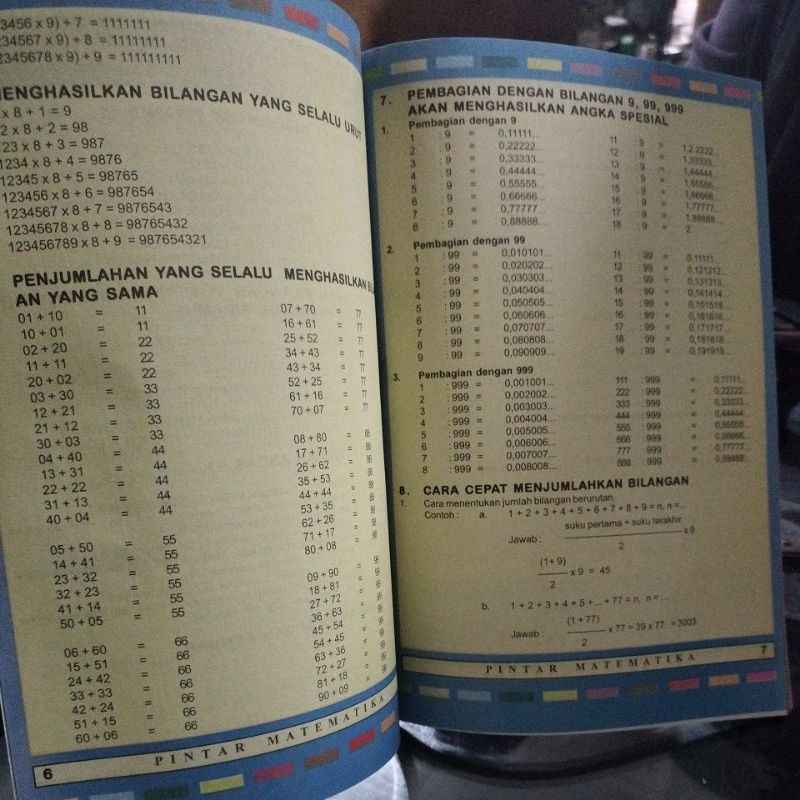 3456 x 9) + 7 = 1111111
234567 x 9) + 8 = 11111111
2345678 x 9) + 9 = 111111111
MENGHASILKAN BILANGAN YANG SELALU URUT
x 8 + 1 = 9
2 x 8 + 2 = 98
123 x 8 + 3 = 987
1234 x 8 + 4 = 9876
12345 x 8 + 5 = 98765
123456 x 8 + 6 = 987654
1234567 x 8 + 7 = 9876543
12345678 x 8 + 8 = 98765432
123456789 x 8 + 9 = 987654321
PENJUMLAHAN YANG SELALU MENGHASILKAN
AN YANG SAMA
01 + 10 = 11
10 + 01 = 11
02 + 20 = 22
11 + 11 = 22
20 + 02 = 22
03 + 30 = 33
12 + 21 = 33
21 + 12 = 33
30 + 03 = 33
04 + 40 = 44
13 + 31 = 44
22 + 22 = 44
31 + 13 = 44
40 + 04 = 44
05 + 50 = 55
14 + 41 = 55
23 + 32 = 55
32 + 23 = 55
41 + 14 = 55
50 + 05 = 55
06 + 60 = 66
15 + 51 = 66
24 + 42 = 66
33 + 33 = 66
42 + 24 = 66
51 + 15 = 66
60 + 06 = 66
07 + 70 = 77
16 + 61 = 77
25 + 52 = 77
34 + 43 = 77
43 + 34 = 77
52 + 25 = 77
61 + 16 = 77
70 + 07 = 77
08 + 80 = 88
17 + 71 = 88
26 + 62 = 88
35 + 53 = 88
44 + 44 = 88
53 + 35 = 88
62 + 26 = 88
71 + 17 = 88
80 + 08 = 88
09 + 90 = 99
18 + 81 = 99
27 + 72 = 99
36 + 63 = 99
45 + 54 = 99
54 + 45 = 99
63 + 36 = 99
72 + 27 = 99
81 + 18 = 99
90 + 09 = 99
6 PINTAR MATEMATIKA
7. PEMBAGIAN DENGAN BILANGAN 9, 99, 999
AKAN MENGHASILKAN ANGKA SPESIAL
1. Pembagian dengan 9
1 : 9 = 0,11111...
2 : 9 = 0,22222...
3 : 9 = 0,33333...
4 : 9 = 0,44444...
5 : 9 = 0,55555...
6 : 9 = 0,66666...
7 : 9 = 0,77777...
8 : 9 = 0,88888...
11 : 9 = 1,2 2222...
12 : 9 = 1,33333...
13 : 9 = 1,44444...
14 : 9 = 1,55555...
15 : 9 = 1,66666...
16 : 9 = 1,77777...
17 : 9 = 1,88888...
18 : 9 = 2
2. Pembagian dengan 99
1 : 99 = 0,010101...
2 : 99 = 0,020202...
3 : 99 = 0,030303...
4 : 99 = 0,040404...
5 : 99 = 0,050505...
6 : 99 = 0,060606...
7 : 99 = 0,070707...
8 : 99 = 0,080808...
9 : 99 = 0,090909...
11 : 99 = 0,11111...
12 : 99 = 0,121212...
13 : 99 = 0,131313...
14 : 99 = 0,141414...
15 : 99 = 0,151515...
16 : 99 = 0,161616...
17 : 99 = 0,171717...
18 : 99 = 0,181818...
19 : 99 = 0,191919...
3. Pembagian dengan 999
1 : 999 = 0,001001...
2 : 999 = 0,002002...
3 : 999 = 0,003003...
4 : 999 = 0,004004...
5 : 999 = 0,005005...
6 : 999 = 0,006006...
7 : 999 = 0,007007...
8 : 999 = 0,008008...
111 : 999 = 0,11111...
222 : 999 = 0,22222...
333 : 999 = 0,33333...
444 : 999 = 0,44444...
555 : 999 = 0,55555...
666 : 999 = 0,66666...
777 : 999 = 0,77777...
888 : 999 = 0,88888...
8. CARA CEPAT MENJUMLAHKAN BILANGAN
1. Cara menentukan jumlah bilangan berurutan.
Contoh : a. 1 + 2 + 3 + 4 + 5 + 6 + 7 + 8 + 9 = n, n = ...
suku pertama + suku terakhir
Jawab : x 9
2
(1+9)
x 9 = 45
2
b. 1 + 2 + 3 + 4 + 5 + ... + 77 = n, n = ...
(1+77)
Jawab : x 77 = 39 x 77 = 3003
2
PINTAR MATEMATIKA 7